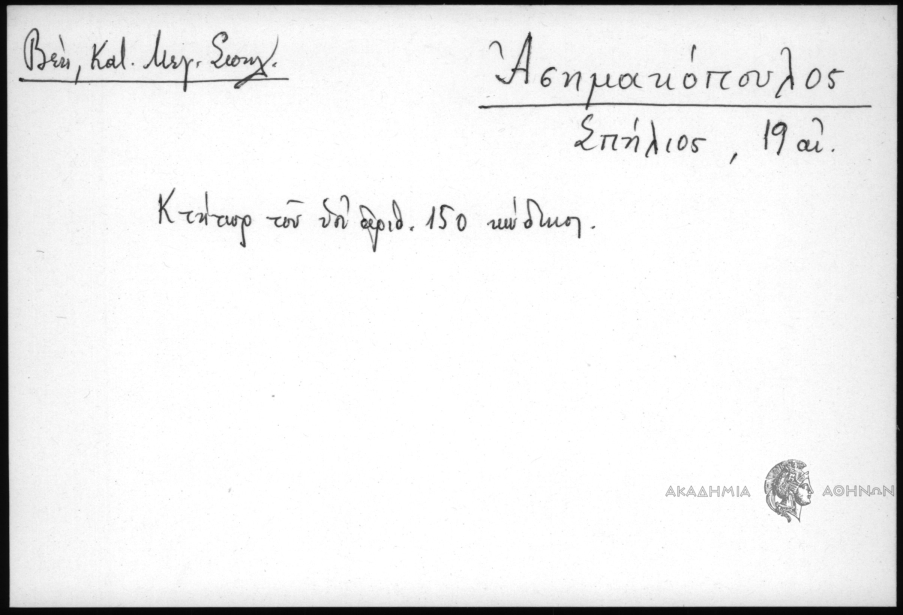 Βέη, Κατ. Μεγ. Σπηλ.
Ἀσημακόπουλος
Σπήλιος, 19 αἰ.
Κτήτωρ τοῦ ὑπ' ἀριθ. 150 κώδικος.
ΑΚΑΔΗΜΙΑ ΑΘΗΝΩΝ